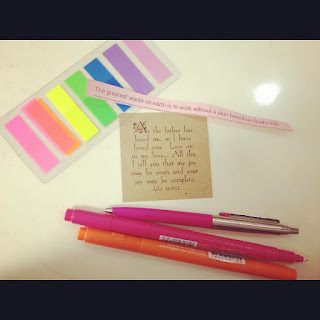 The greatest waste on earth is to work without a plan based on God's
As the father has
loved me, so I have
loved you. Live on
in my love... All this
I tell you that my joy
may be yours and your
joy may be complete.
John